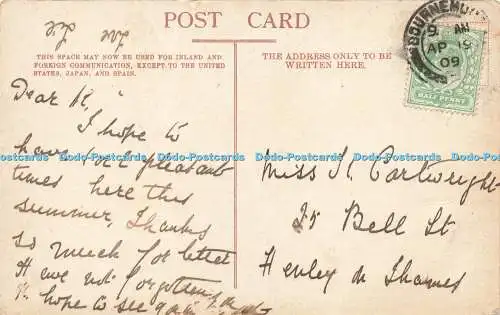 POST CARD
THIS SPACE MAY NOW BE USED FOR INLAND AND
FOREIGN COMMUNICATION, EXCEPT TO THE UNITED
STATES, JAPAN, AND SPAIN.
THE ADDRESS ONLY TO BE
WRITTEN HERE.
BOURNEMOUTH
9 AM
AP
09
HALF PENNY
Dear K,
I hope to
have some pleasant
times here this
summer, Thanks
so much for letter
Have not forgotten
hope to see
Miss K. Cartwright
25 Bell St
Henley on Thames
Dodo-Postcards Dodo-Postcards Dodo-Postcards Dodo-Postcards Dodo-Postcards